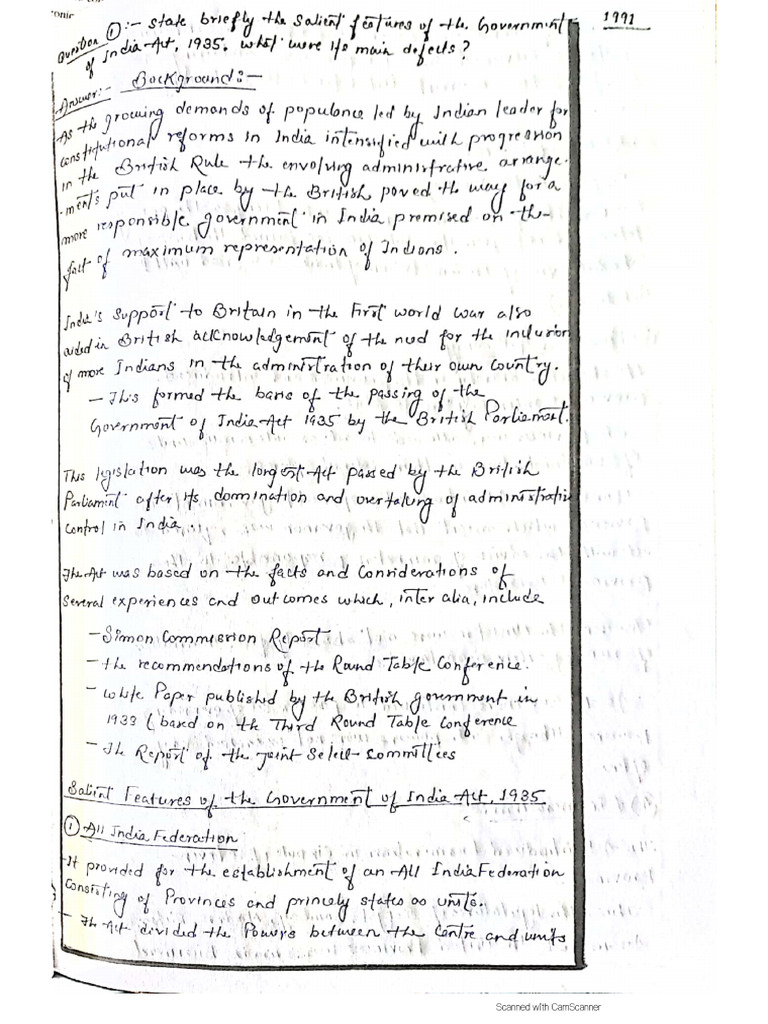 onic
1991
Question ① :- State briefly the Salient features of the Government
of India Act, 1935. What were its main defects?
Answer:- Background:-
As the growing demands of populance led by Indian leader for
constitutional reforms in India intensified with progression
in the British Rule the envolving administrative arrange-
-ments put in place by the British paved the way for a
more responsible government in India premised on the
fact of maximum representation of Indians.
India's support to Britain in the First world war also
aided in British acknowledgement of the need for the inclusion
of more Indians in the administration of their own Country.
- This formed the basis of the passing of the
Government of India Act 1935 by the British Parliament.
This legislation was the longest Act passed by the British
Parliament after its domination and overtaking of administrative
control in India.
The Act was based on the facts and Considerations of
Several experiences and outcomes which, inter alia, include
- Simon Commission Report
- the recommendations of the Round Table Conference.
- White Paper published by the British government in
1933 (based on the Third Round Table Conference
- The Report of the Joint Select Committies
Salient Features of the Government of India Act, 1935
① All India Federation
- It provided for the establishment of an All India Federation
Consisting of Provinces and princely states as units.
- The Act divided the Powers between the Centre and units
Scanned with CamScanner